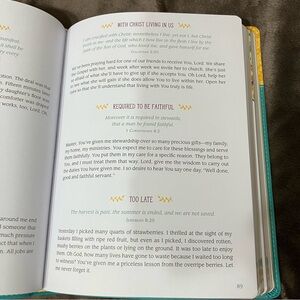 WITH CHRIST LIVING IN US
I am crucified with Christ: nevertheless I live; yet not I, but Christ
liveth in me: and the life which I now live in the flesh I live by the
faith of the Son of God, who loved me, and gave himself for me.
GALATIANS 2:20
We've been praying hard for one of our friends to receive You, Lord. We share
the Gospel with her, and week after week we invite her to church. She's just
so afraid of what she'll have to give up if she accepts You. Oh Lord, help her
to see what she will gain if she does allow You to live within her. Open her
ears so that she'll understand that living with You truly is life.
REQUIRED TO BE FAITHFUL
Moreover it is required in stewards,
that a man be found faithful.
1 CORINTHIANS 4:2
Master, You've given me stewardship over so many precious gifts—my family,
my home, my ministries. You expect me to care for these blessings and serve
them faithfully. You put them in my care for a specific reason. They belong to
You, and I must treat them that way. Lord, give me the wisdom to carry out
the duties You have given me. I so desire to hear You say one day, "Well done,
good and faithful servant."
TOO LATE
The harvest is past, the summer is ended, and we are not saved.
JEREMIAH 8:20
Yesterday I picked many quarts of strawberries. I thrilled at the sight of my
baskets filling with ripe red fruit, but even as I picked, I discovered rotten,
mushy berries on the plants and on the ground. It was too late to enjoy
them. Oh God, how many lives have gone to waste because I waited too long
to witness? You've given me a priceless lesson from the overripe berries. Let
me never forget it.
89
The deal was that
daughter's floor
works, too, Lord.
around me end
much pressure
in this context.
All jobs are